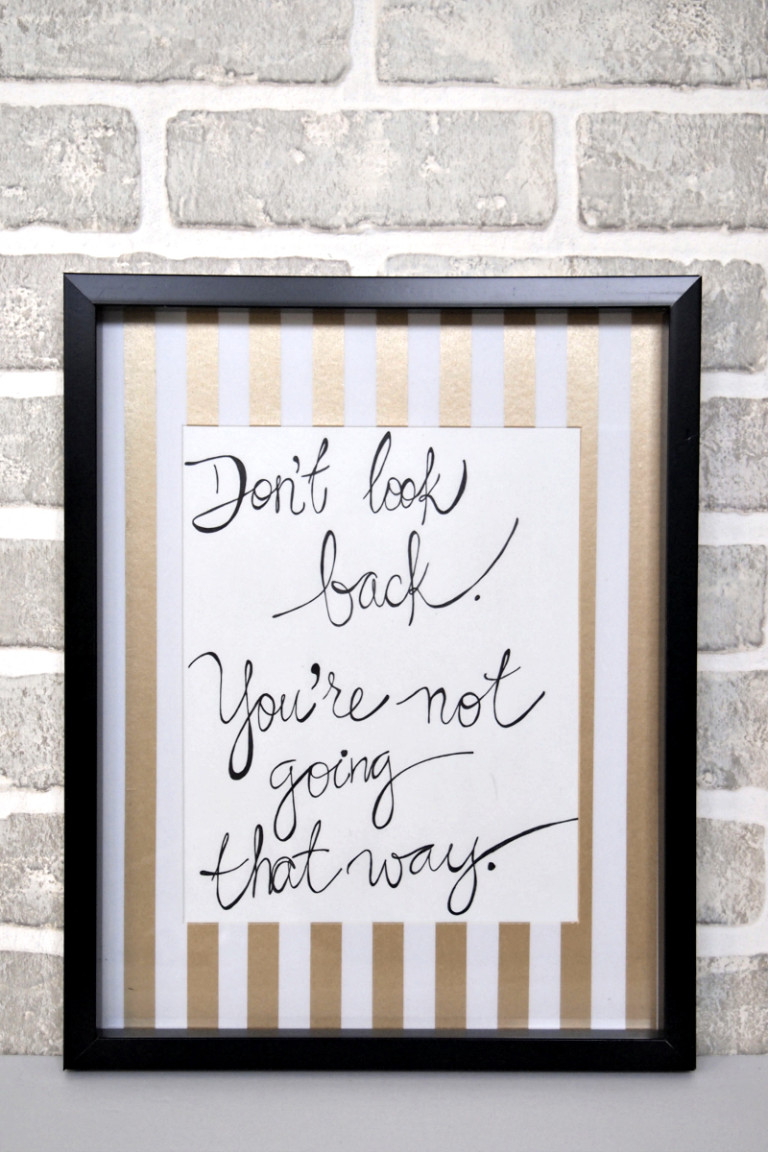 Don't look
back.
You're not
going
that way.